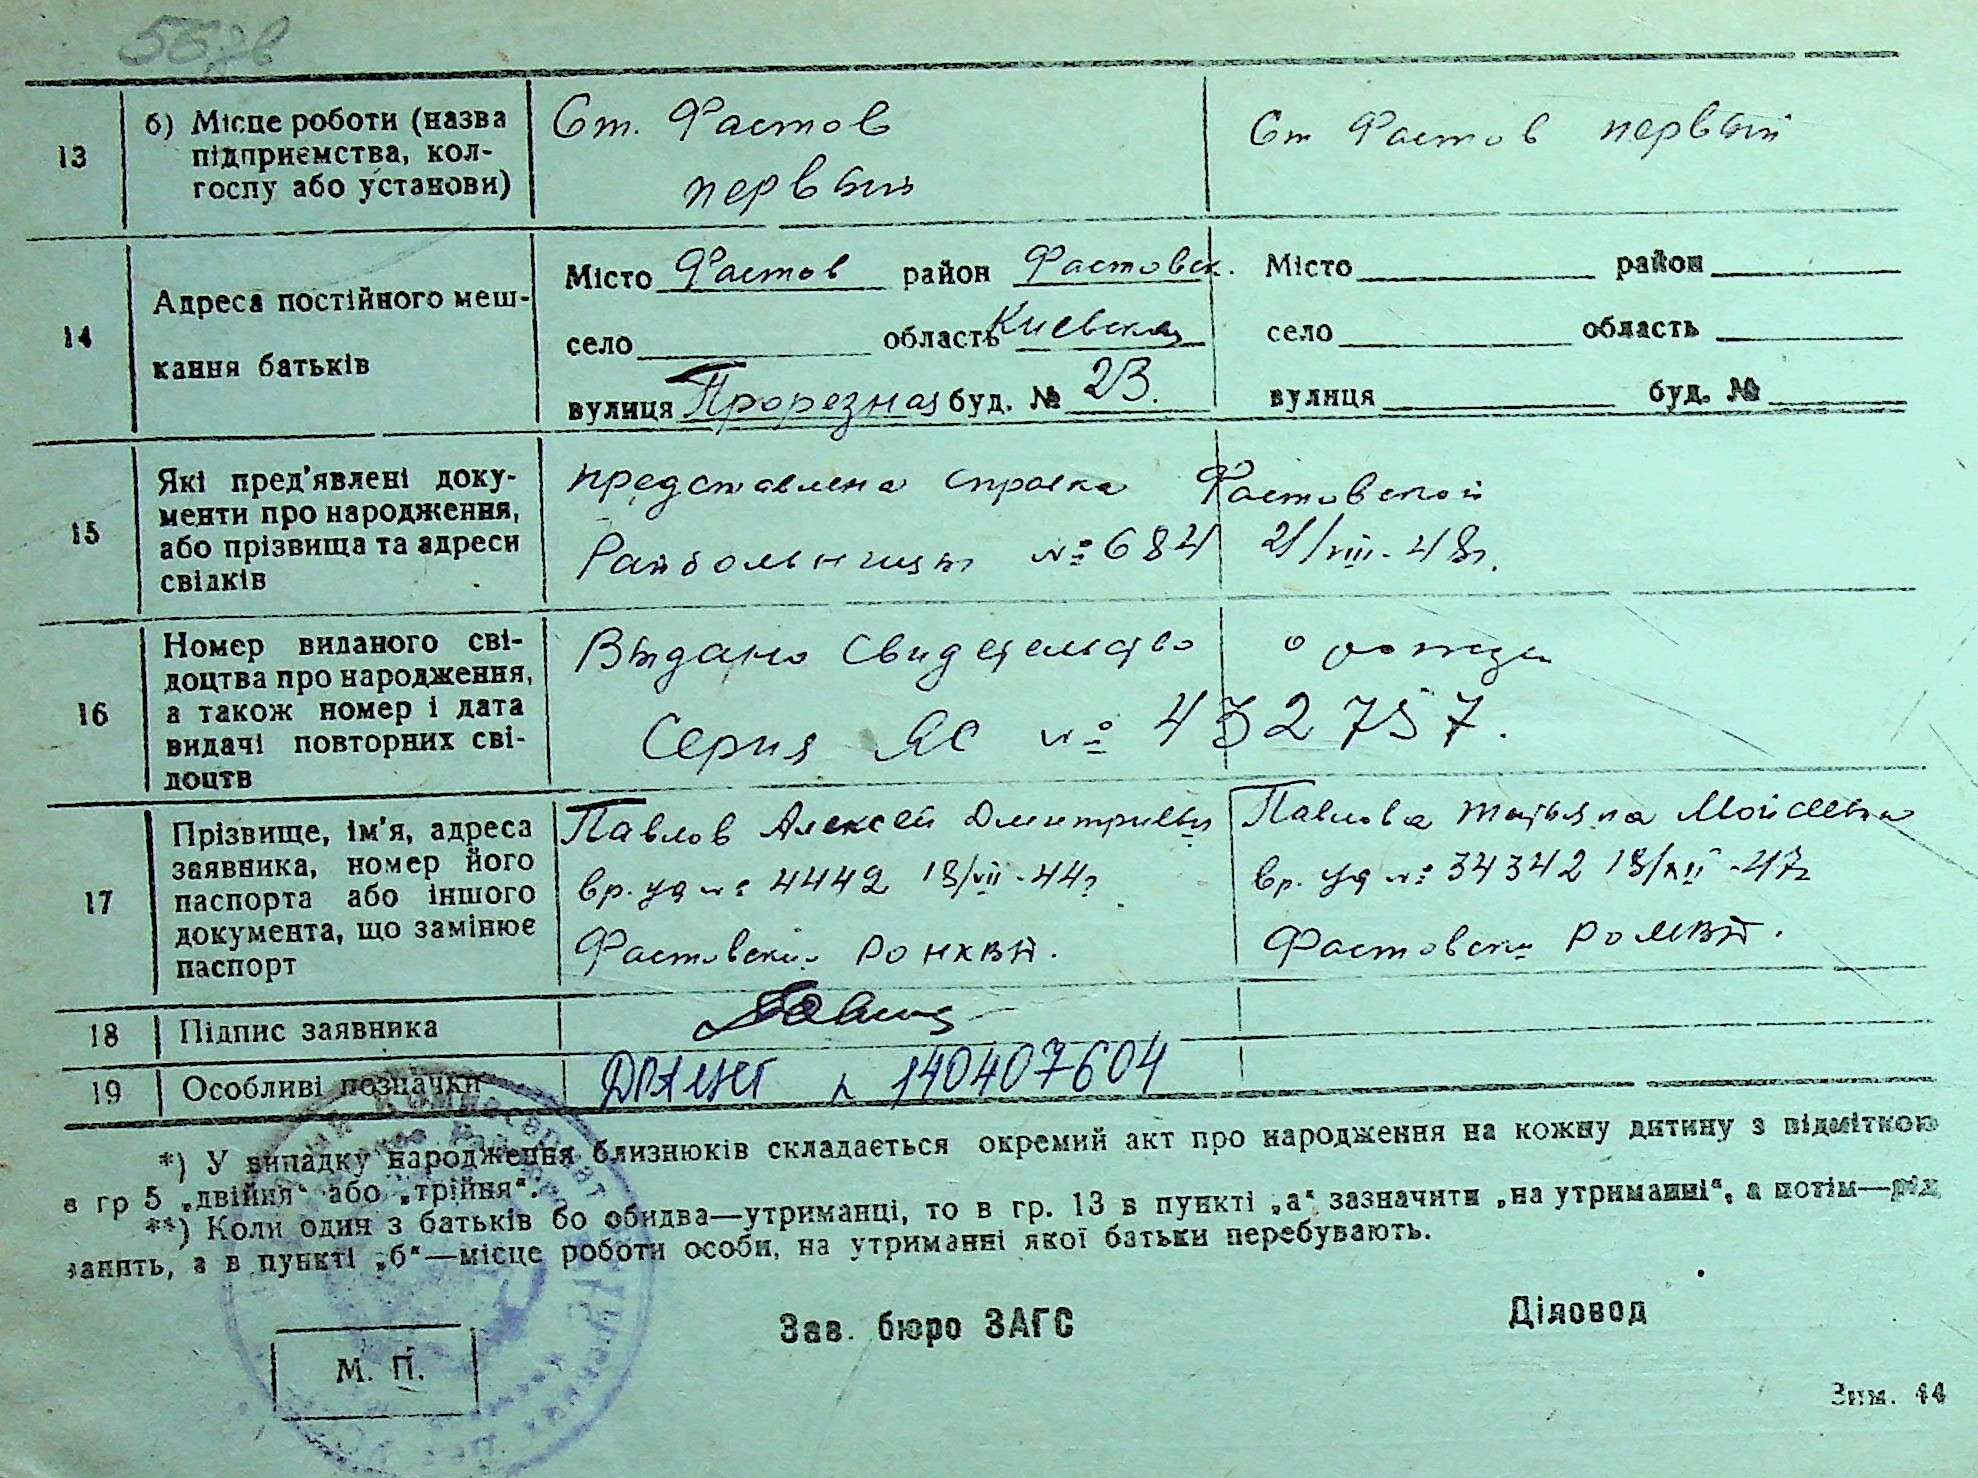 13 б) Місце роботи (назва підприємства, колгоспу або установи)
Ст. Фастов
первый
Ст Фастов первый
14 Адреса постійного мешкання батьків
Місто Фастов район Фастовск.
село область Киевская
вулиця Прорезная буд. № 23.
Місто район
село область
вулиця буд. №
15 Які пред'явлені документи про народження, або прізвища та адреси свідків
представлена справка Фастовской
Райбольницы № 684 21/VIII-48г.
16 Номер виданого свідоцтва про народження, а також номер і дата видачі повторних свідоцтв
Выдано Свидетельство о рожден
Серия ЯС № 432757.
17 Прізвище, ім'я, адреса заявника, номер його паспорта або іншого документа, що замінює паспорт
Павлов Алексей Дмитриевич
вр. уд № 4442 13/VII-44г
Фастовский РОНКВД.
Павлова Татьяна Моисеевна
вр. уд № 34342 13/XII-47г
Фастовски РОМВД.
18 Підпис заявника
19 Особливі позначки
140407604
*) У випадку народження близнюків складається окремий акт про народження на кожну дитину з відміткою
в гр 5 „двійня“ або „трійня“.
**) Коли один з батьків бо обидва—утриманці, то в гр. 13 в пункті „а“ зазначити „на утриманні“, а потім—рід
занять, а в пункті „б“—місце роботи особи, на утриманні якої батьки перебувають.
Зав. бюро ЗАГС
Діловод
М. П.
Зим. 44